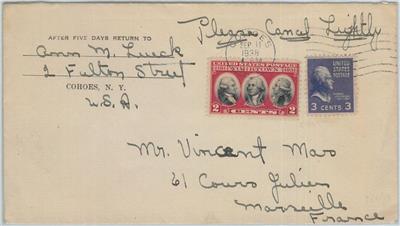 AFTER FIVE DAYS RETURN TO
Ann M. Lueck
2 Fulton Street
COHOES, N. Y.
U.S.A.
Please Cancel Lightly
SEP 11
1938
UNITED STATES POSTAGE
1781 YORKTOWN 1931
2 CENTS 2
3 CENTS 3
Mr. Vincent Maro
61 Cours Julien
Marseille
France